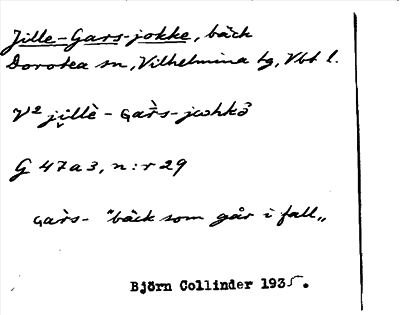 Jille-Gars-jokke, bäck
Dorotea sn, Vilhelmina tg, Vbt l.
V² ji̬llè - Gar̀s- jwhkǒ
G 47a3, n:r 29
Gàrs- "bäck som går i fall„
Björn Collinder 1935.